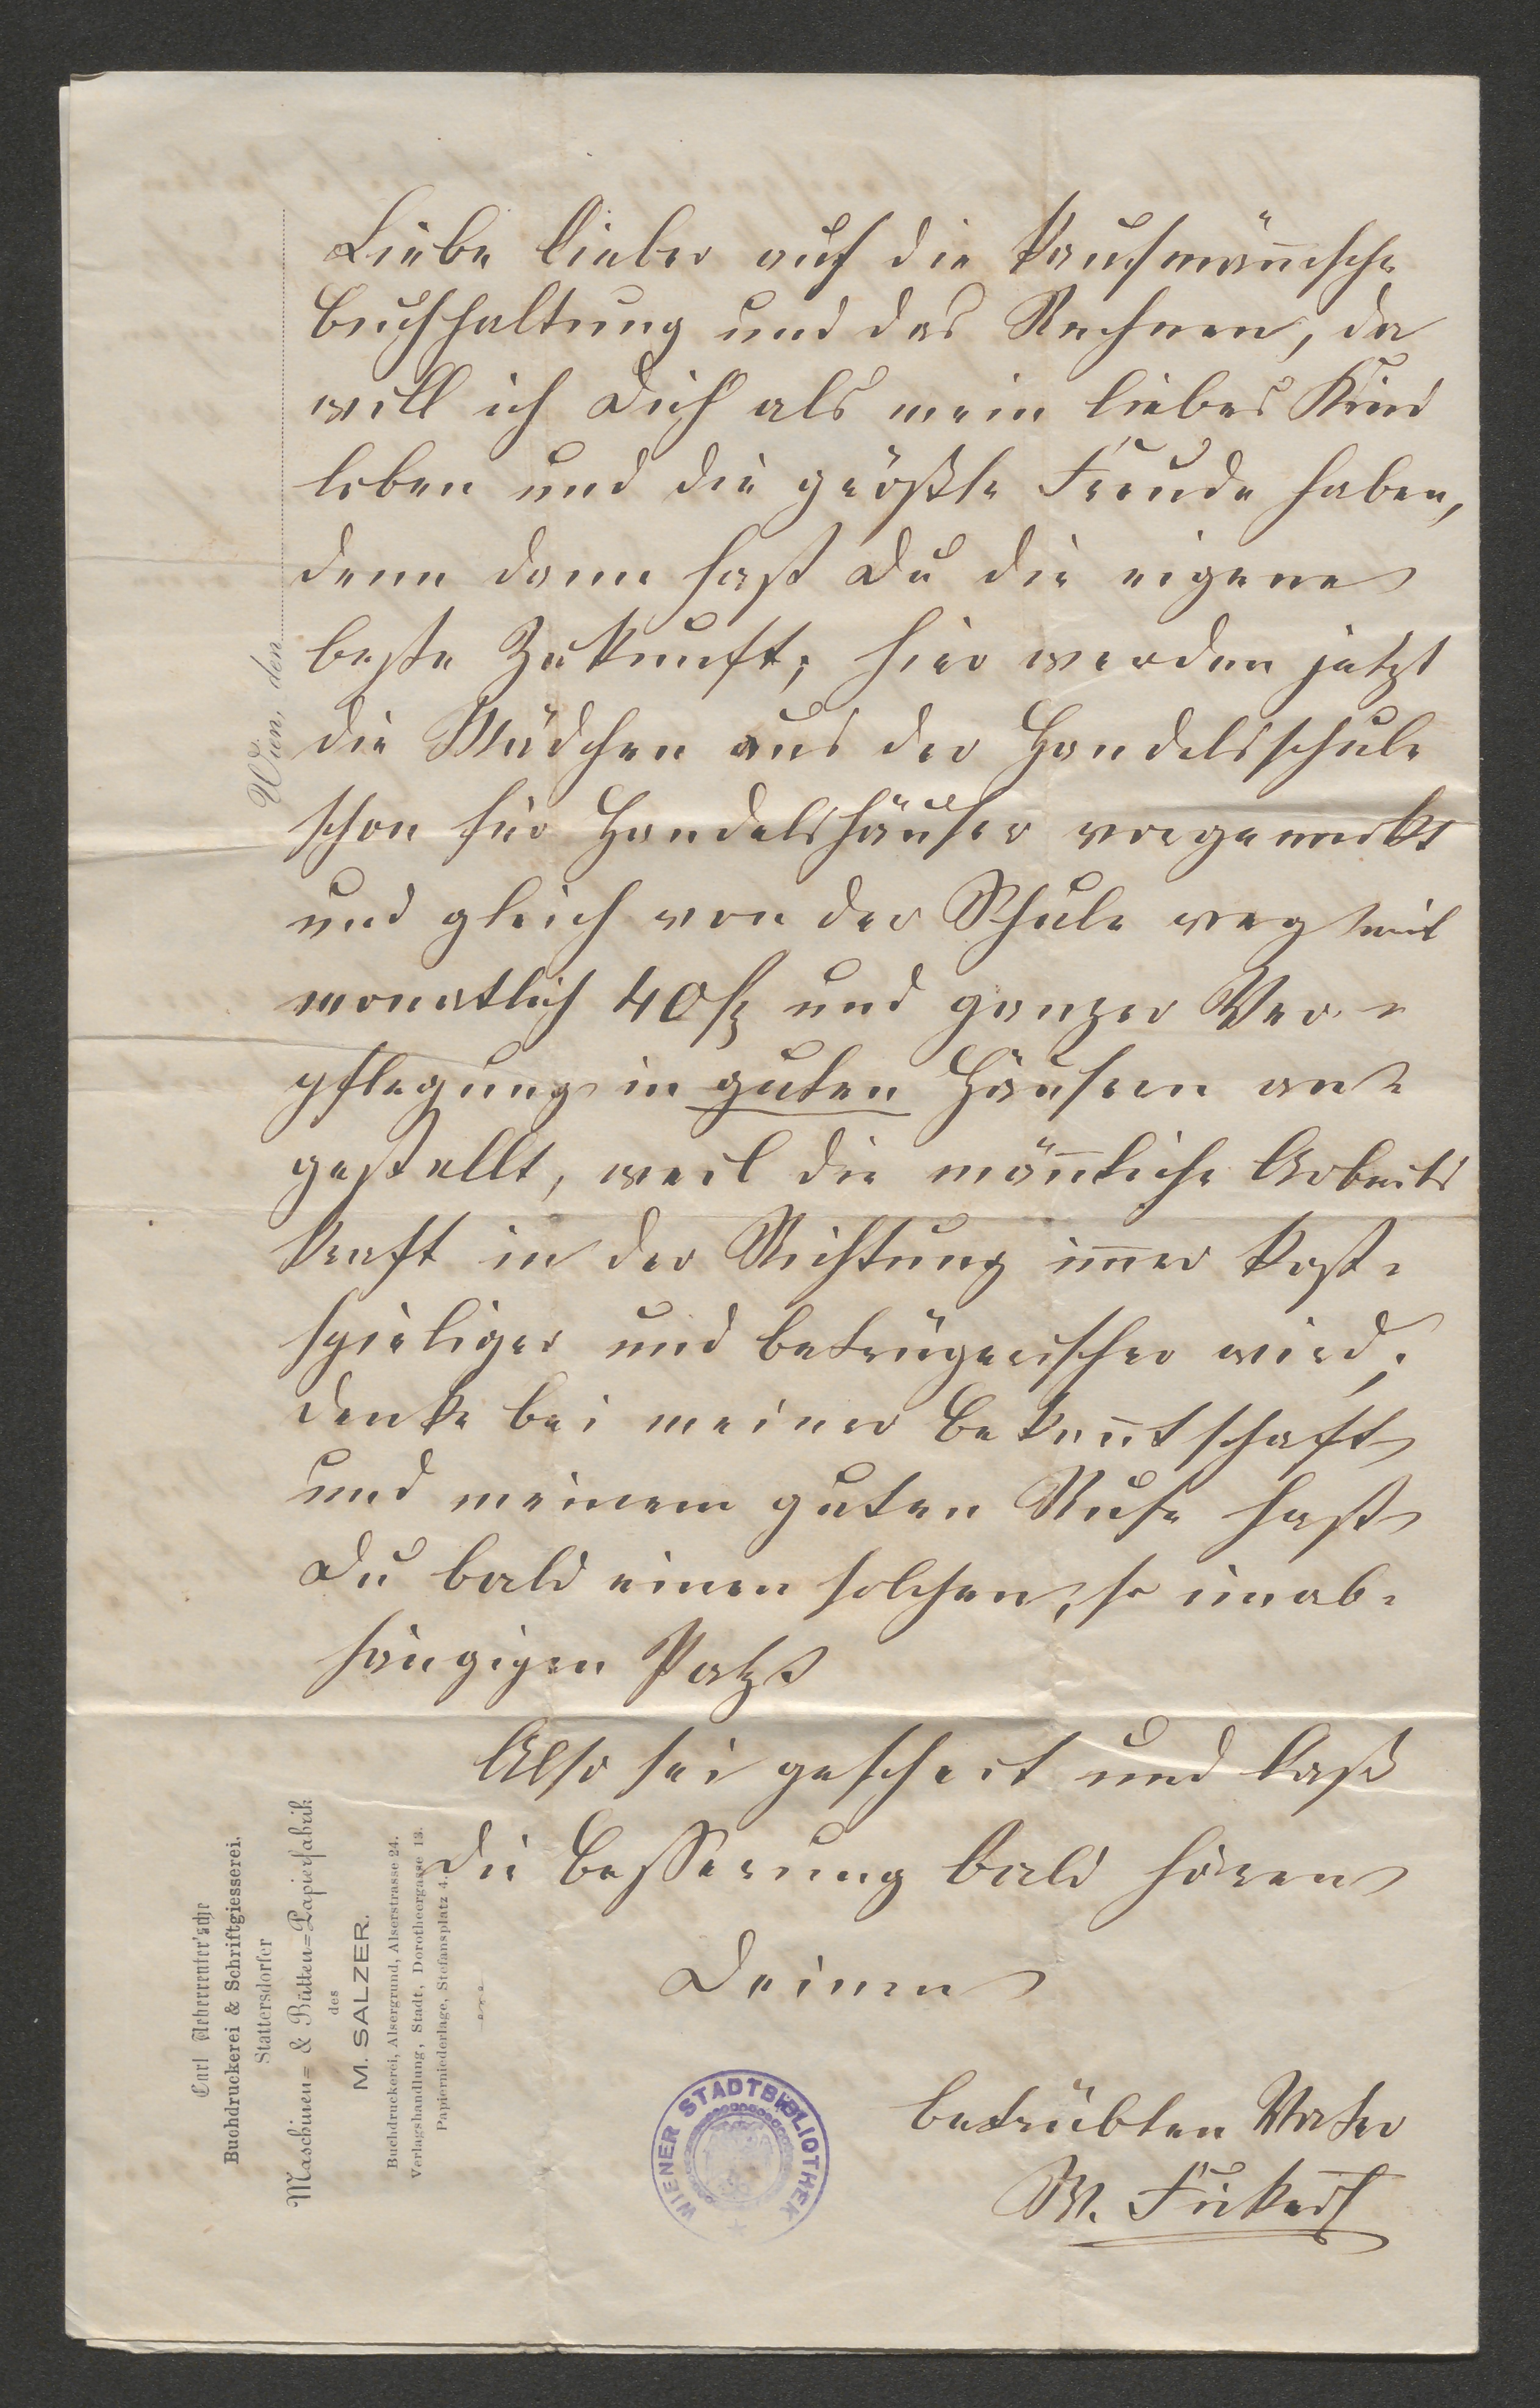 Liebe lieber auf die kaufmän̄ische
Buchhaltung und das Rechnen, da
will ich Dich als mein liebes Kind
loben und die größte Freude haben,
denn dann hast Du die eigene
beste Zukunft; hier werden jetzt
die Mädchen aus der Handelsschule
schon für Handelshäuser vorgemerkt
und gleich von der Schule weg mit
monatlich 40 fl und ganzer Ver-
pflegung in guten Häusern an-
gestellt, weil die män̄liche Arbeits
kraft in der Richtung im̄er kost-
spieliger und betrügerischer wird;
denke bei meiner Bekan̄tschaft
und meinem guten Rufe hast
Du bald einen solchen, so unab-
hängigen Platz
Also sei gescheit und laß
die Besserung bald hören
Deinen
betrübten Vater
W. Fickert
Wien, den
Carl Ueberreuter'sche
Buchdruckerei & Schriftgiesserei.
Stattersdorfer
Maschinen= & Bütten=Papierfabrik
des
M. SALZER.
Buchdruckerei, Alsergrund, Alserstrasse 24.
Verlagshandlung, Stadt, Dorotheergasse 13.
Papierniederlage, Stefansplatz 4.
WIENER STADTBIBLIOTHEK